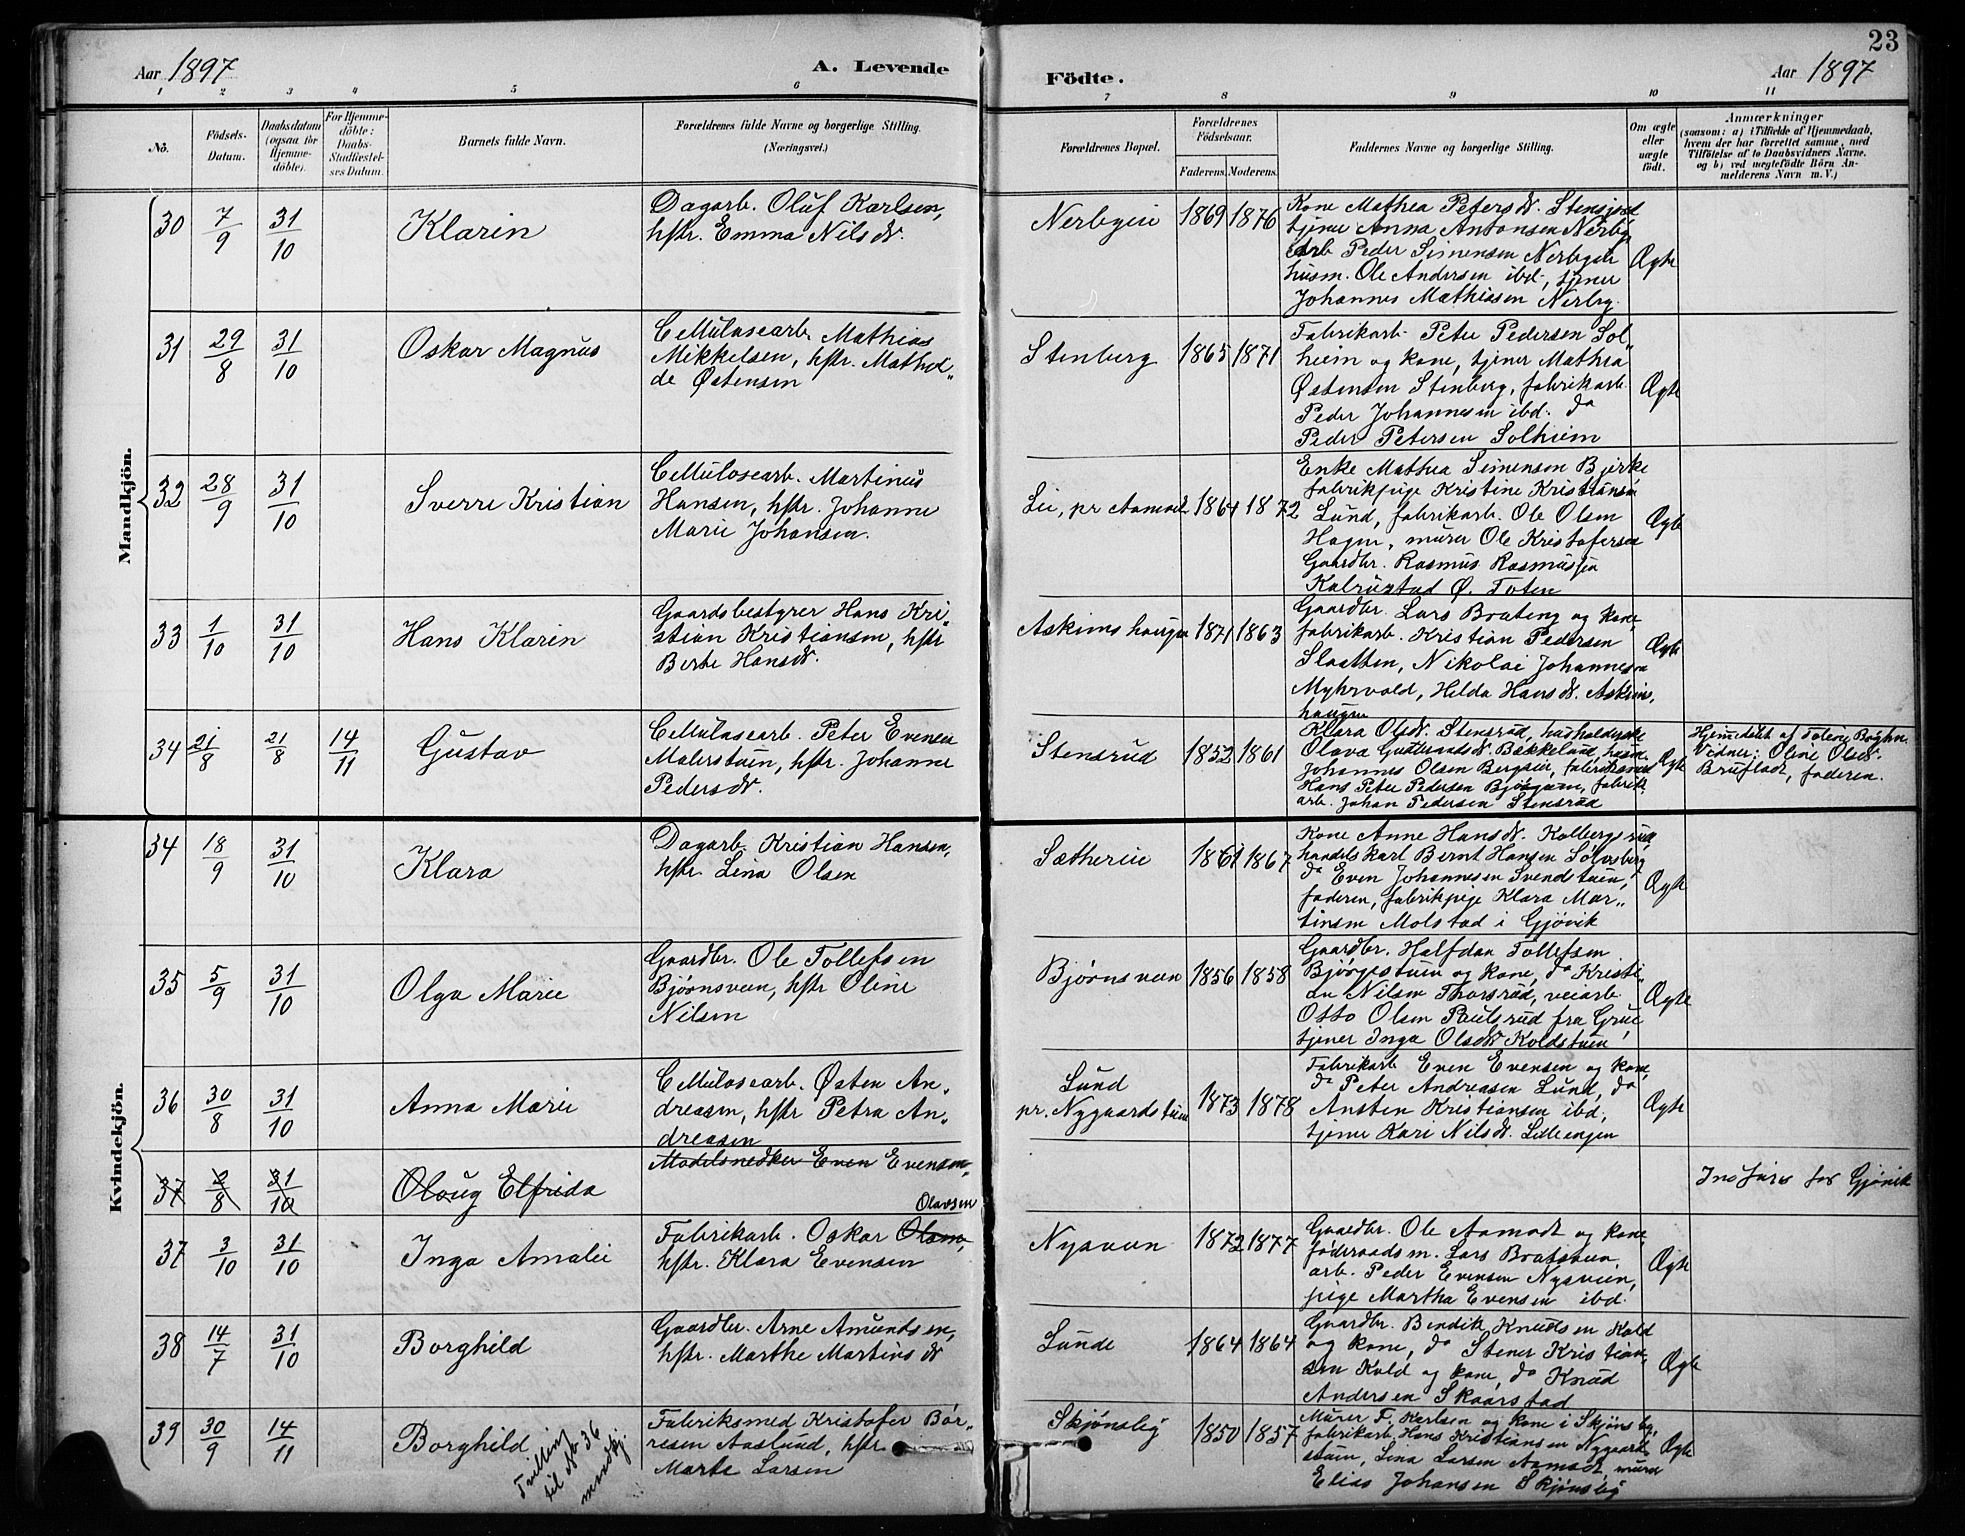 23
Aar 1897
A. Levende
Födte.
Aar 1897
1 2 3 4 5 6 7 8 9 10 11
No.
Födsels-
Datum.
Daabsdatum
(ogsaa for
Hjemme-
döbte).
For Hjemme-
döbte:
Daabs-
Stadfæstel-
ses Datum.
Barnets fulde Navn.
Forældrenes fulde Navne og borgerlige Stilling.
(Næringsvei.)
Forældrenes Bopæl.
Forældrenes
Födselsaar.
Faderens. Moderens.
Faddernes Navne og borgerlige Stilling.
Om ægte
eller
uægte
födt.
Anmærkninger
(saasom: a) i Tilfælde af Hjemmedaab,
hvem der har forrettet samme, med
Tilföielse af to Daabsvidners Navne.
og b) ved uægtefödte Börn An-
melderens Navn m. V.)
Mandkjön.
30 7/9 31/10 Klarin
Dagarb. Oluf Karlsen,
hstr. Emma Nilsdr.
Nerbyeie 1869 1876
Kone Mathea Petersdr. Stensjord
tjener Anna Antonsen Nerby,
Arb Peder Simensen Nerbyeie
husm. Ole Andersen ibd., tjener
Johannes Mathiasen Nerby.
Ægte
31 29/8 31/10 Oskar Magnus
Cellulosearb. Mathias
Mikkelsen, hstr. Mathil„
de Østensen
Stenberg 1865 1871
Fabrikarb. Peter Pedersen Sol„
heim og kone, tjener Mathea
Østensen Stenberg, fabrikarb.
Peder Johannesen ibd. do
Peder Petersen Solheim
Ægte
32 28/9 31/10 Sverre Kristian
Cellulosearb. Martinus
Hansen, hstr. Johanne
Marie Johansen.
Lie, pr Aamodt 1864 1872
Enke Mathea Simensen Bjerke
fabrikpige Kristine Kristiansen
Lund, fabrikarb. Ole Olsen
Hagen, murer Ole Kristofersen
Gaardbr. Rasmus Rasmussen
Kalrustad Ø. Toten
Ægte
33 1/10 31/10 Hans Klarin
Gaardsbestyrer Hans Kri„
stian Kristiansen, hstr
Berte Hansdr.
Askimshaugen 1871 1863
Gaardbr. Lars Braateng og kone,
fabrikarb. Kristian Pedersen
Slaatten, Nikolai Johannesen
Myhrvold, Hilda Hansdr. Askims,
haugen
Ægte
34 21/8 21/8 14/11 Gustav
Cellulosearb. Peter Evensen
Malerstuen, hstr. Johanne
Pedersdr.
Stensrud 1852 1861
Klara Olsdr. Stensrud, husholderske
Olava Gulbrandsdr. Bakkelund, husm.
Johannes Olsen Bergseie,
Hans Peter Pedersen fabrik
arb. Johan Pedersen Stensrud
Ægte
Hjemedøbt af Boghn.
Vidner: Oline Olsdr.
Brufladt, faderen.
Kvindekjön.
34 18/9 31/10 Klara
Dagarb. Kristian Hansen,
hstr. Lina Olsen
Sæthereie 1861 1867
Kone Anne Hansdr. Kolbergsrud
handelskarl Bernt Hansen Solvsberg
do Even Johannesen Svendstuen,
faderen, fabrikpige Klara Mar„
tinsen Molstad i Gjøvik
Ægte
35 5/9 31/10 Olga Marie
Gaardbr. Ole Tollefsen
Bjørnsveen, hstr Oline
Nilsen
Bjørnsveen 1856 1858
Gaardbr. Halfdan Tollefsen
Bjørgestuen og kone, do Kristi„
an Nilsen Thorsrud, veiarb.
Otto Olsen Paulsrud fra Grue
tjener Inga Olsdr Koldstuen
Ægte
36 30/8 31/10 Anna Marie
Cellulosearb. Østen An„
dreasen, hstr Petra An„
dreasen
Lund
pr. Nygaardstuen 1873 1878
Fabrikarb Even Evensen og kone,
do Peter Andreasen Lund, do
Ansten Kristiansen ibd,
tjener Kari Nilsdr. Lilleengen
Ægte
37 2/8 31/10 Olaug Elfrida
Modelsnedker Even Evensen
Indføres for Gjøvik
37 3/10 31/10 Inga Amalie
Olavsen
Fabrikarb. Oskar Olsen,
hstr. Klara Evensen
Nysveen 1872 1877
Gaardbr. Ole Aamodt og kone,
føderaadsm. Lars Braastuen,
arb. Peder Evensen Nysveen,
pige Martha Evensen ibd.
Ægte
38 14/7 31/10 Borghild
Gaardbr. Arne Amundsen,
hstr. Marthe Martinsdr
Lunde 1864 1864
Gaardbr. Bendik Knudsen Kold
og kone, do Stener Kristian„
sen Kold og kone, do Knud
Andersen Skaarstad
Ægte
39 30/9 14/11 Borghild
Tvilling
til No 36
mandkj.
Fabriksmed Kristofer Bør„
resen Aaslund, hstr
Marte Larsen
Skjønsby 1850 1857
Murer F. Karlsen og kone i Skjønsby,
fabrikarb. Hans Kristiansen Nygaard
stuen, Lina Larsen Aamodt, murer
Elias Johansen Skjønsby
Ægte